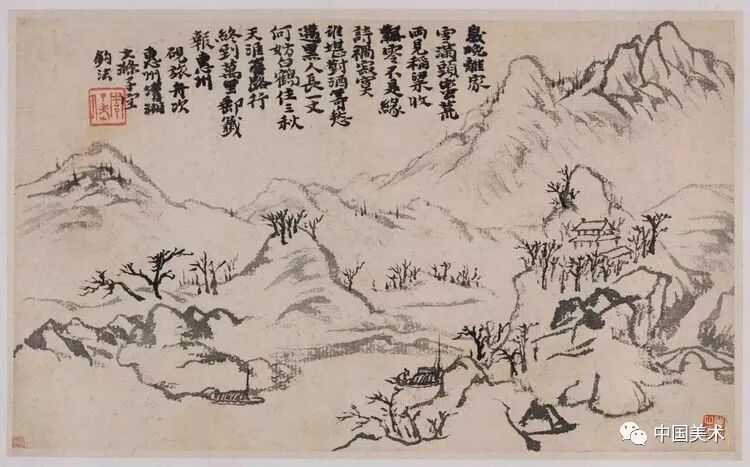 歲晚離家
雪滿頭雲荒
兩見稻粱收
飄零不是緣
詩禍寂寞
誰堪對酒愁
黑人長一丈
何妨白鶴住三秋
天涯路行
終到萬里郵籤
報惠州
硯旅舟次
惠州湖
大滌子寫
鈎法
中国美术